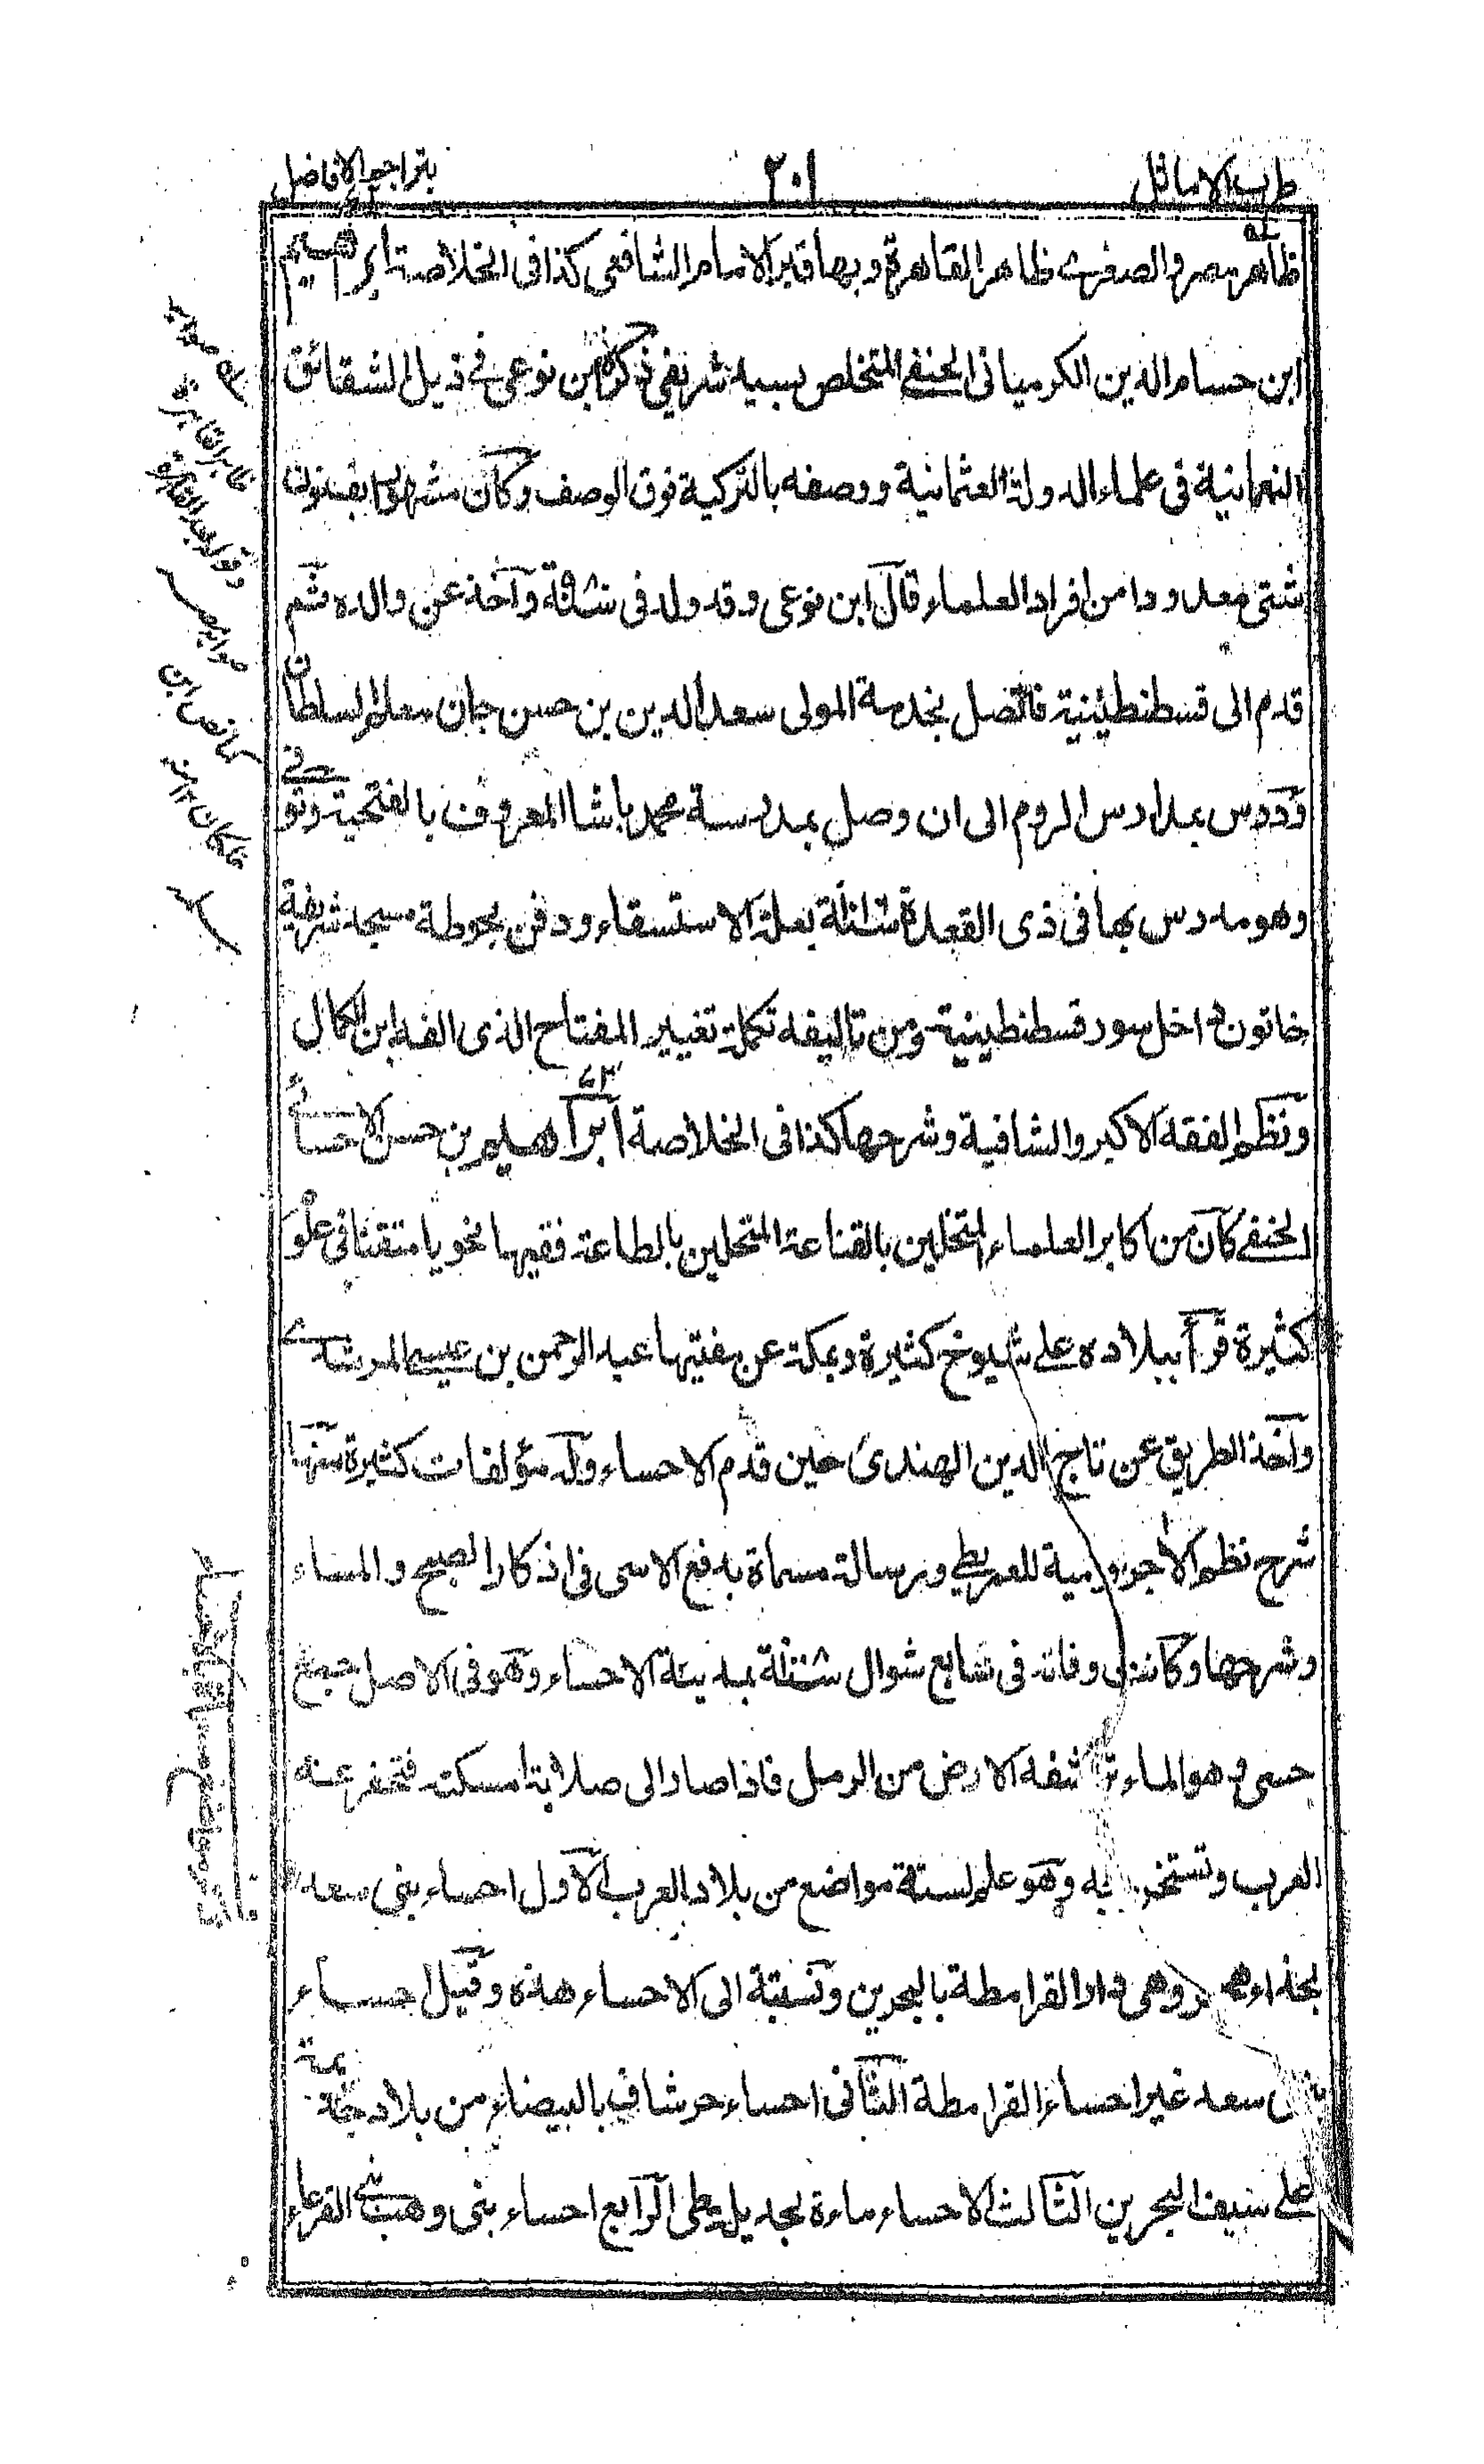 طرب الاماثل
٢٠١
بتراجم الافاضل
ظاهر مصر والصغرے ظاهر القاهرة وبها قبر الامام الشافعی کذا فی الخلاصة ابراهیم
ابن حسام الدین الکرمیانی الحنفے المتخلص بسید شریفی ذکره ابن نوعی فے ذیل الشقائق
النعمانیة فی علماء الدولة العثمانیة ووصفه بالترکیة فوق الوصف وکان مشهورا بفنون
شتی معدودا من افراد العلماء قال ابن نوعی وقد ولد فی سنة واخذ عن والده ثم
قدم الی قسطنطینیة فاتصل بخدمة المولی سعد الدین بن حسن جان معلم السلطان
ودرس بمدارس الروم الی ان وصل بمدرسة محمد باشا المعروف بالفتحیة وتوفے
وهو مدرس بها فی ذی القعدة سنة بعلة الاستسقاء ودفن بحوطة مسجد شریفة
خاتون داخل سور قسطنطینیة ومن تالیفه تکملة تغییر المفتاح الذی الفه ابن الکمال
ونظم الفقه الاکبر والشافیة وشرحها کذا فی الخلاصة ابراهیم بن حسن الاحسائے
الحنفے کان من اکابر العلماء المتخلین بالقناعة المتحلین بالطاعة فقیها نحویا متفننا فی علوم
کثیرة قرأ ببلاده علے شیوخ کثیرة وبمکة عن مفتیها عبد الرحمن بن عیسے المرشدے
واخذ الطریق عن تاج الدین الهندی حین قدم الاحساء وله مؤلفات کثیرة منها
شرح نظم الأجرومیة للعمریطے ورسالة مسماة بدفع الاسی فی اذکار الصبح والمساء
وشرحها وکانت وفاته فی سابع شوال سنة بمدینة الاحساء وهو فی الاصل جمع
حسی وهو الماء تنشفه الارض من الرمل فاذا صار الی صلابة امسکته فتحفر عنه
العرب وتستخرجه وهو علم لستة مواضع من بلاد العرب الاول احساء بنی سعد
بحذاء هجر وهی دار القرامطة بالبحرین ونسبته الی الاحساء هذه وقیل احساء
بنی سعد غیر احساء القرامطة الثانی احساء خرشاف بالبیضاء من بلاد جذیمة
علے سیف البحرین الثالث الاحساء ماءة لجدیلة طی الرابع احساء بنی وهب القرعاء